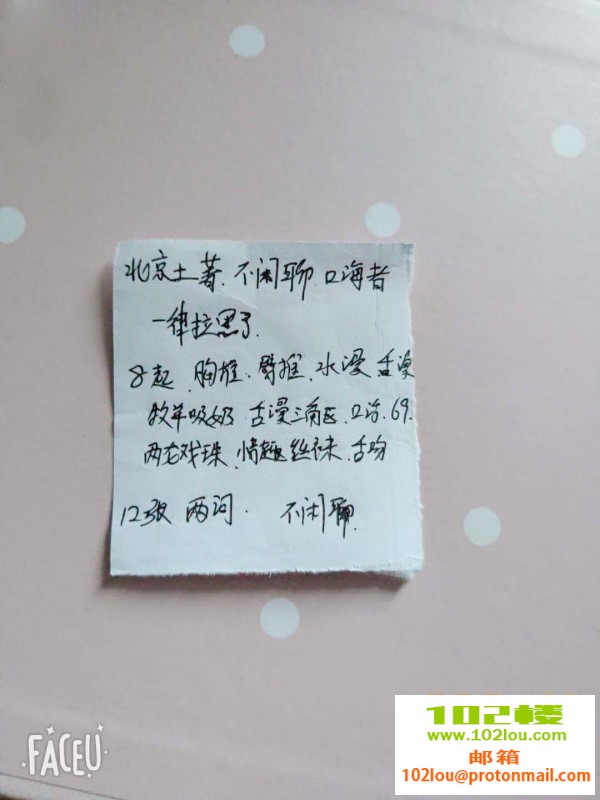 北京土著.不闲聊 口海者
一律拉黑了.
8起 胸推.臀推.水漫 舌漫
牧羊吸奶 舌漫三角区.口活.69.
两龙戏珠.情趣丝袜.舌吻
12张 两词. 不闲聊.
FACEU
102楼
www.102lou.com
邮箱
102lou@protonmail.com